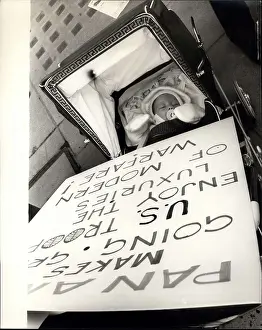 PAN AM
MAKES
GOING · GR
U.S. TROOP
ENJOY THE
LUXURIES
OF MODERN
WARFARE!